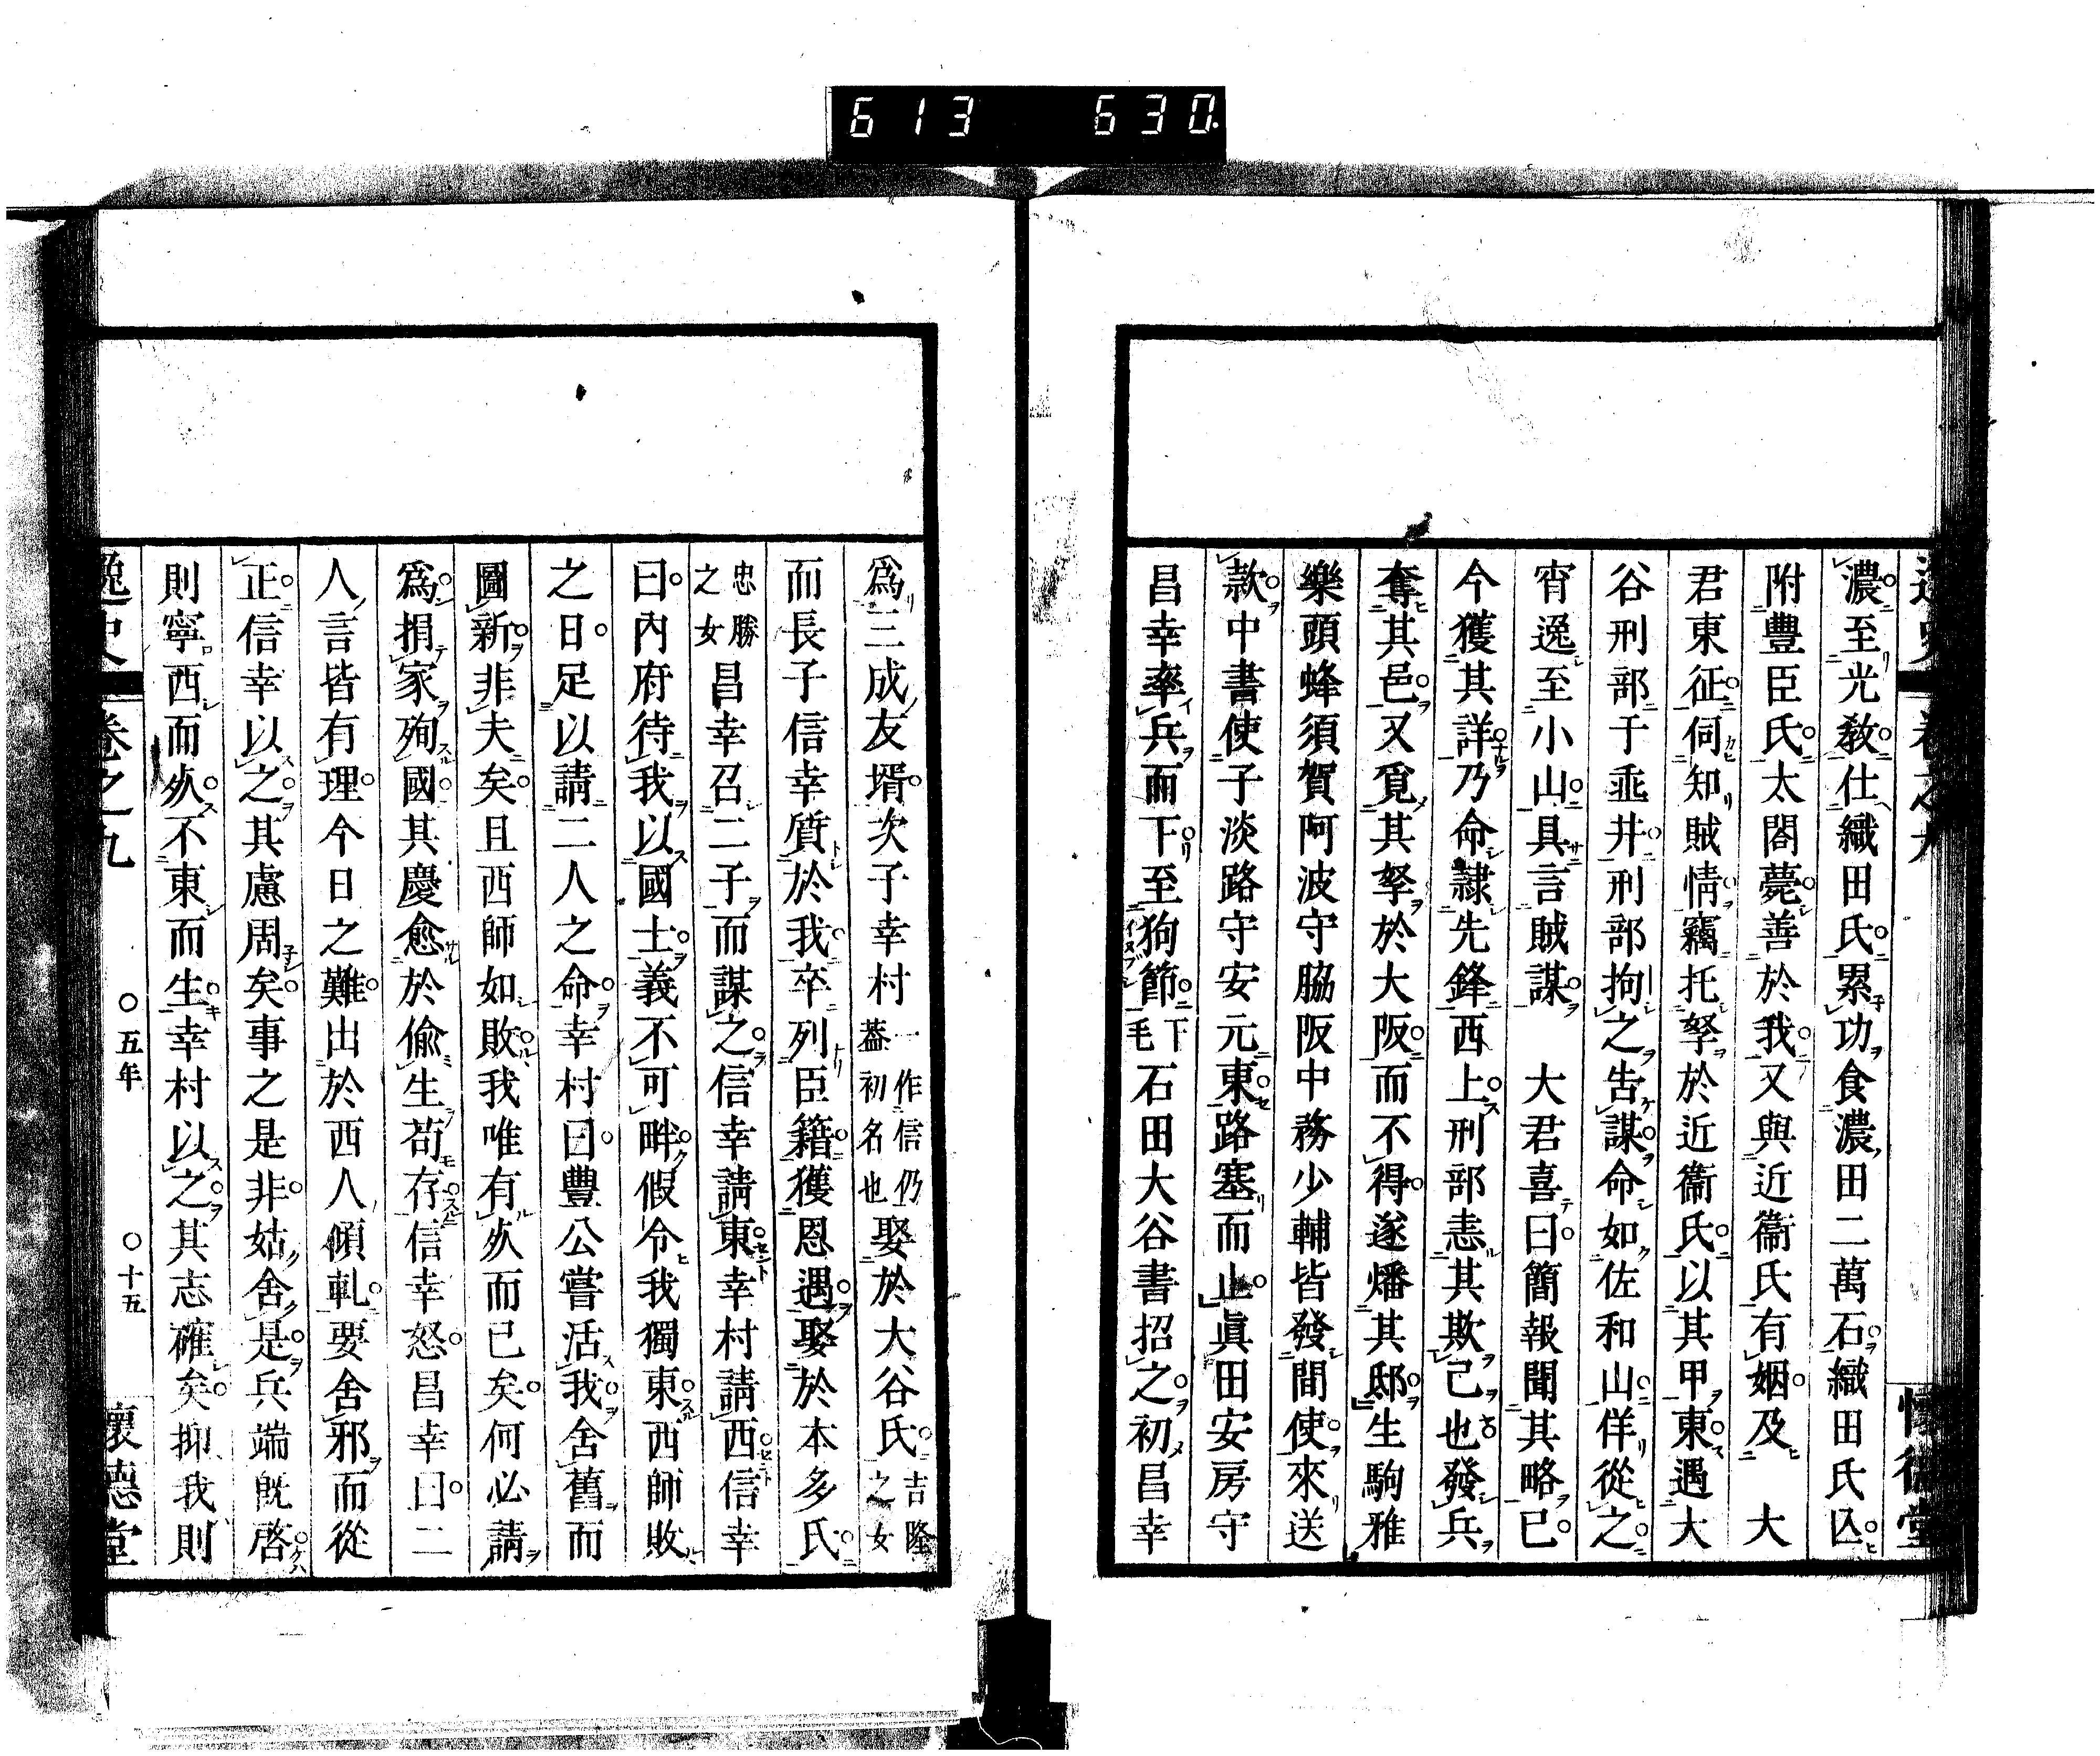 613 630
濃至光敎仕織田氏累功食濃田二萬石織田氏亾
附豐臣氏太閤薨善於我又與近衞氏有姻及　大
君東征伺知賊情竊托孥於近衞氏以其甲東遇大
谷刑部于垂井刑部拘之告謀命如佐和山佯從之
宵逸至小山具言賊謀　大君喜曰簡報聞其略已
今獲其詳乃命隷先鋒西上刑部恚其欺己也發兵
奪其邑又覓其孥於大阪而不得遂燔其邸生駒雅
樂頭蜂須賀阿波守脇阪中務少輔皆發間使來送
款中書使子淡路守安元東路塞而止眞田安房守
昌幸率兵而下至狗節下毛石田大谷書招之初昌幸
爲三成友壻次子幸村一作信仍蓋初名也娶於大谷氏吉隆之女
而長子信幸質於我卒列臣籍獲恩遇娶於本多氏
忠勝之女昌幸召二子而謀之信幸請東幸村請西信幸
曰內府待我以國士義不可畔假令我獨東西師敗
之日足以請二人之命幸村曰豐公嘗活我舍舊而
圖新非夫矣且西師如敗我唯有㱙而已矣何必請
爲捐家殉國其慶愈於偷生苟存信幸怒昌幸曰二
人言皆有理今日之難出於西人傾軋要舍邪而從
正信幸以之其慮周矣事之是非姑舍是兵端旣啓
則寧西而㱙不東而生幸村以之其志確矣抑我則
逸史 卷之九 ○五年 ○十五 懷德堂